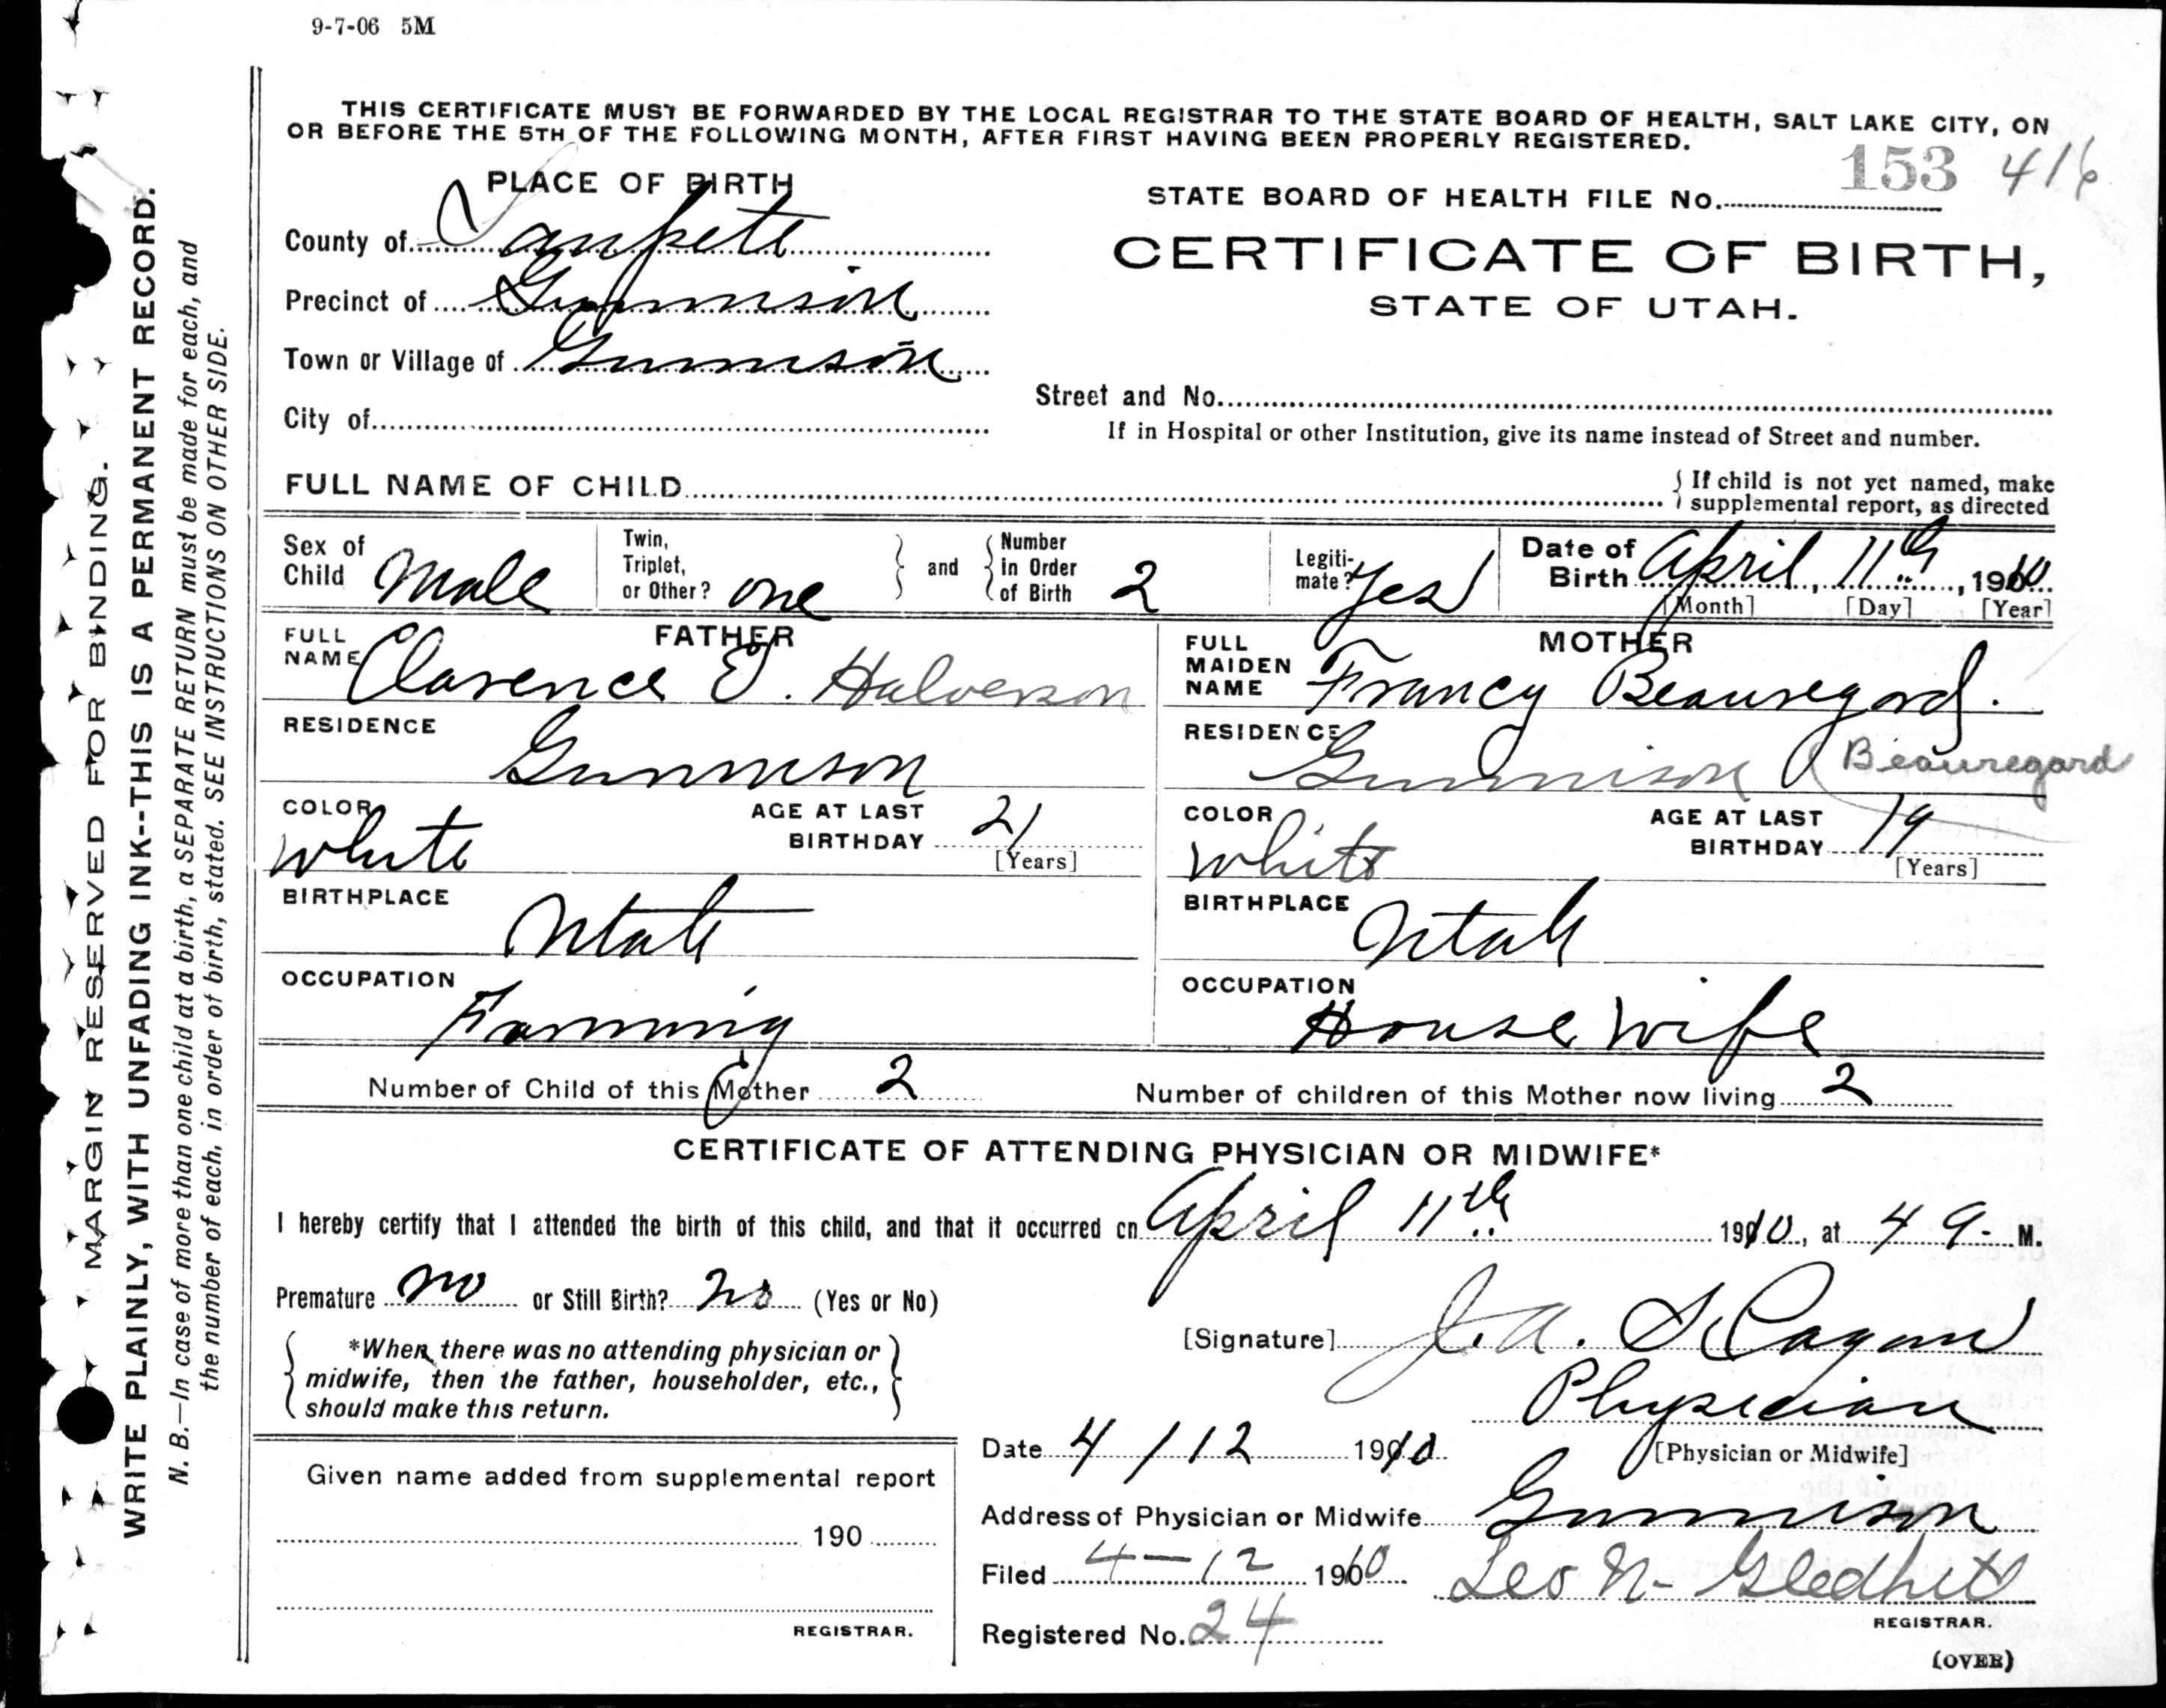 9-7-06 5M
THIS CERTIFICATE MUST BE FORWARDED BY THE LOCAL REGISTRAR TO THE STATE BOARD OF HEALTH, SALT LAKE CITY, ON
OR BEFORE THE 5TH OF THE FOLLOWING MONTH, AFTER FIRST HAVING BEEN PROPERLY REGISTERED.
MARGIN RESERVED FOR BINDING.
WRITE PLAINLY, WITH UNFADING INK--THIS IS A PERMANENT RECORD.
N. B.—In case of more than one child at a birth, a SEPARATE RETURN must be made for each, and
the number of each, in order of birth, stated. SEE INSTRUCTIONS ON OTHER SIDE.
PLACE OF BIRTH
County of Sanpete
Precinct of Gunnison
Town or Village of Gunnison
City of
153 416
STATE BOARD OF HEALTH FILE No.
CERTIFICATE OF BIRTH,
STATE OF UTAH.
Street and No.
If in Hospital or other Institution, give its name instead of Street and number.
FULL NAME OF CHILD
If child is not yet named, make
supplemental report, as directed
Sex of Child Male
Twin, Triplet, or Other? one
and
Number in Order of Birth 2
Legiti-mate? Yes
Date of Birth April, 11th, 1910
[Month] [Day] [Year]
FATHER
FULL NAME Clarence E. Halverson
RESIDENCE
Gunnison
COLOR white
AGE AT LAST BIRTHDAY 21
[Years]
BIRTHPLACE
Utah
OCCUPATION
Farming
MOTHER
FULL MAIDEN NAME Francy Beauregard.
RESIDENCE
Gunnison (Beauregard
COLOR white
AGE AT LAST BIRTHDAY 19
[Years]
BIRTHPLACE
Utah
OCCUPATION
House wife
Number of Child of this Mother 2
Number of children of this Mother now living 2
CERTIFICATE OF ATTENDING PHYSICIAN OR MIDWIFE*
I hereby certify that I attended the birth of this child, and that it occurred on April 11th 1910, at 4 a. M.
Premature no or Still Birth? no (Yes or No)
*When there was no attending physician or
midwife, then the father, householder, etc.,
should make this return.
[Signature] J. A.
Physician
[Physician or Midwife]
Date 4/12 1910
Address of Physician or Midwife Gunnison
Filed 4-12 1910 Leo N- Gledhill
REGISTRAR.
Registered No. 24
(OVER)
Given name added from supplemental report
190
REGISTRAR.